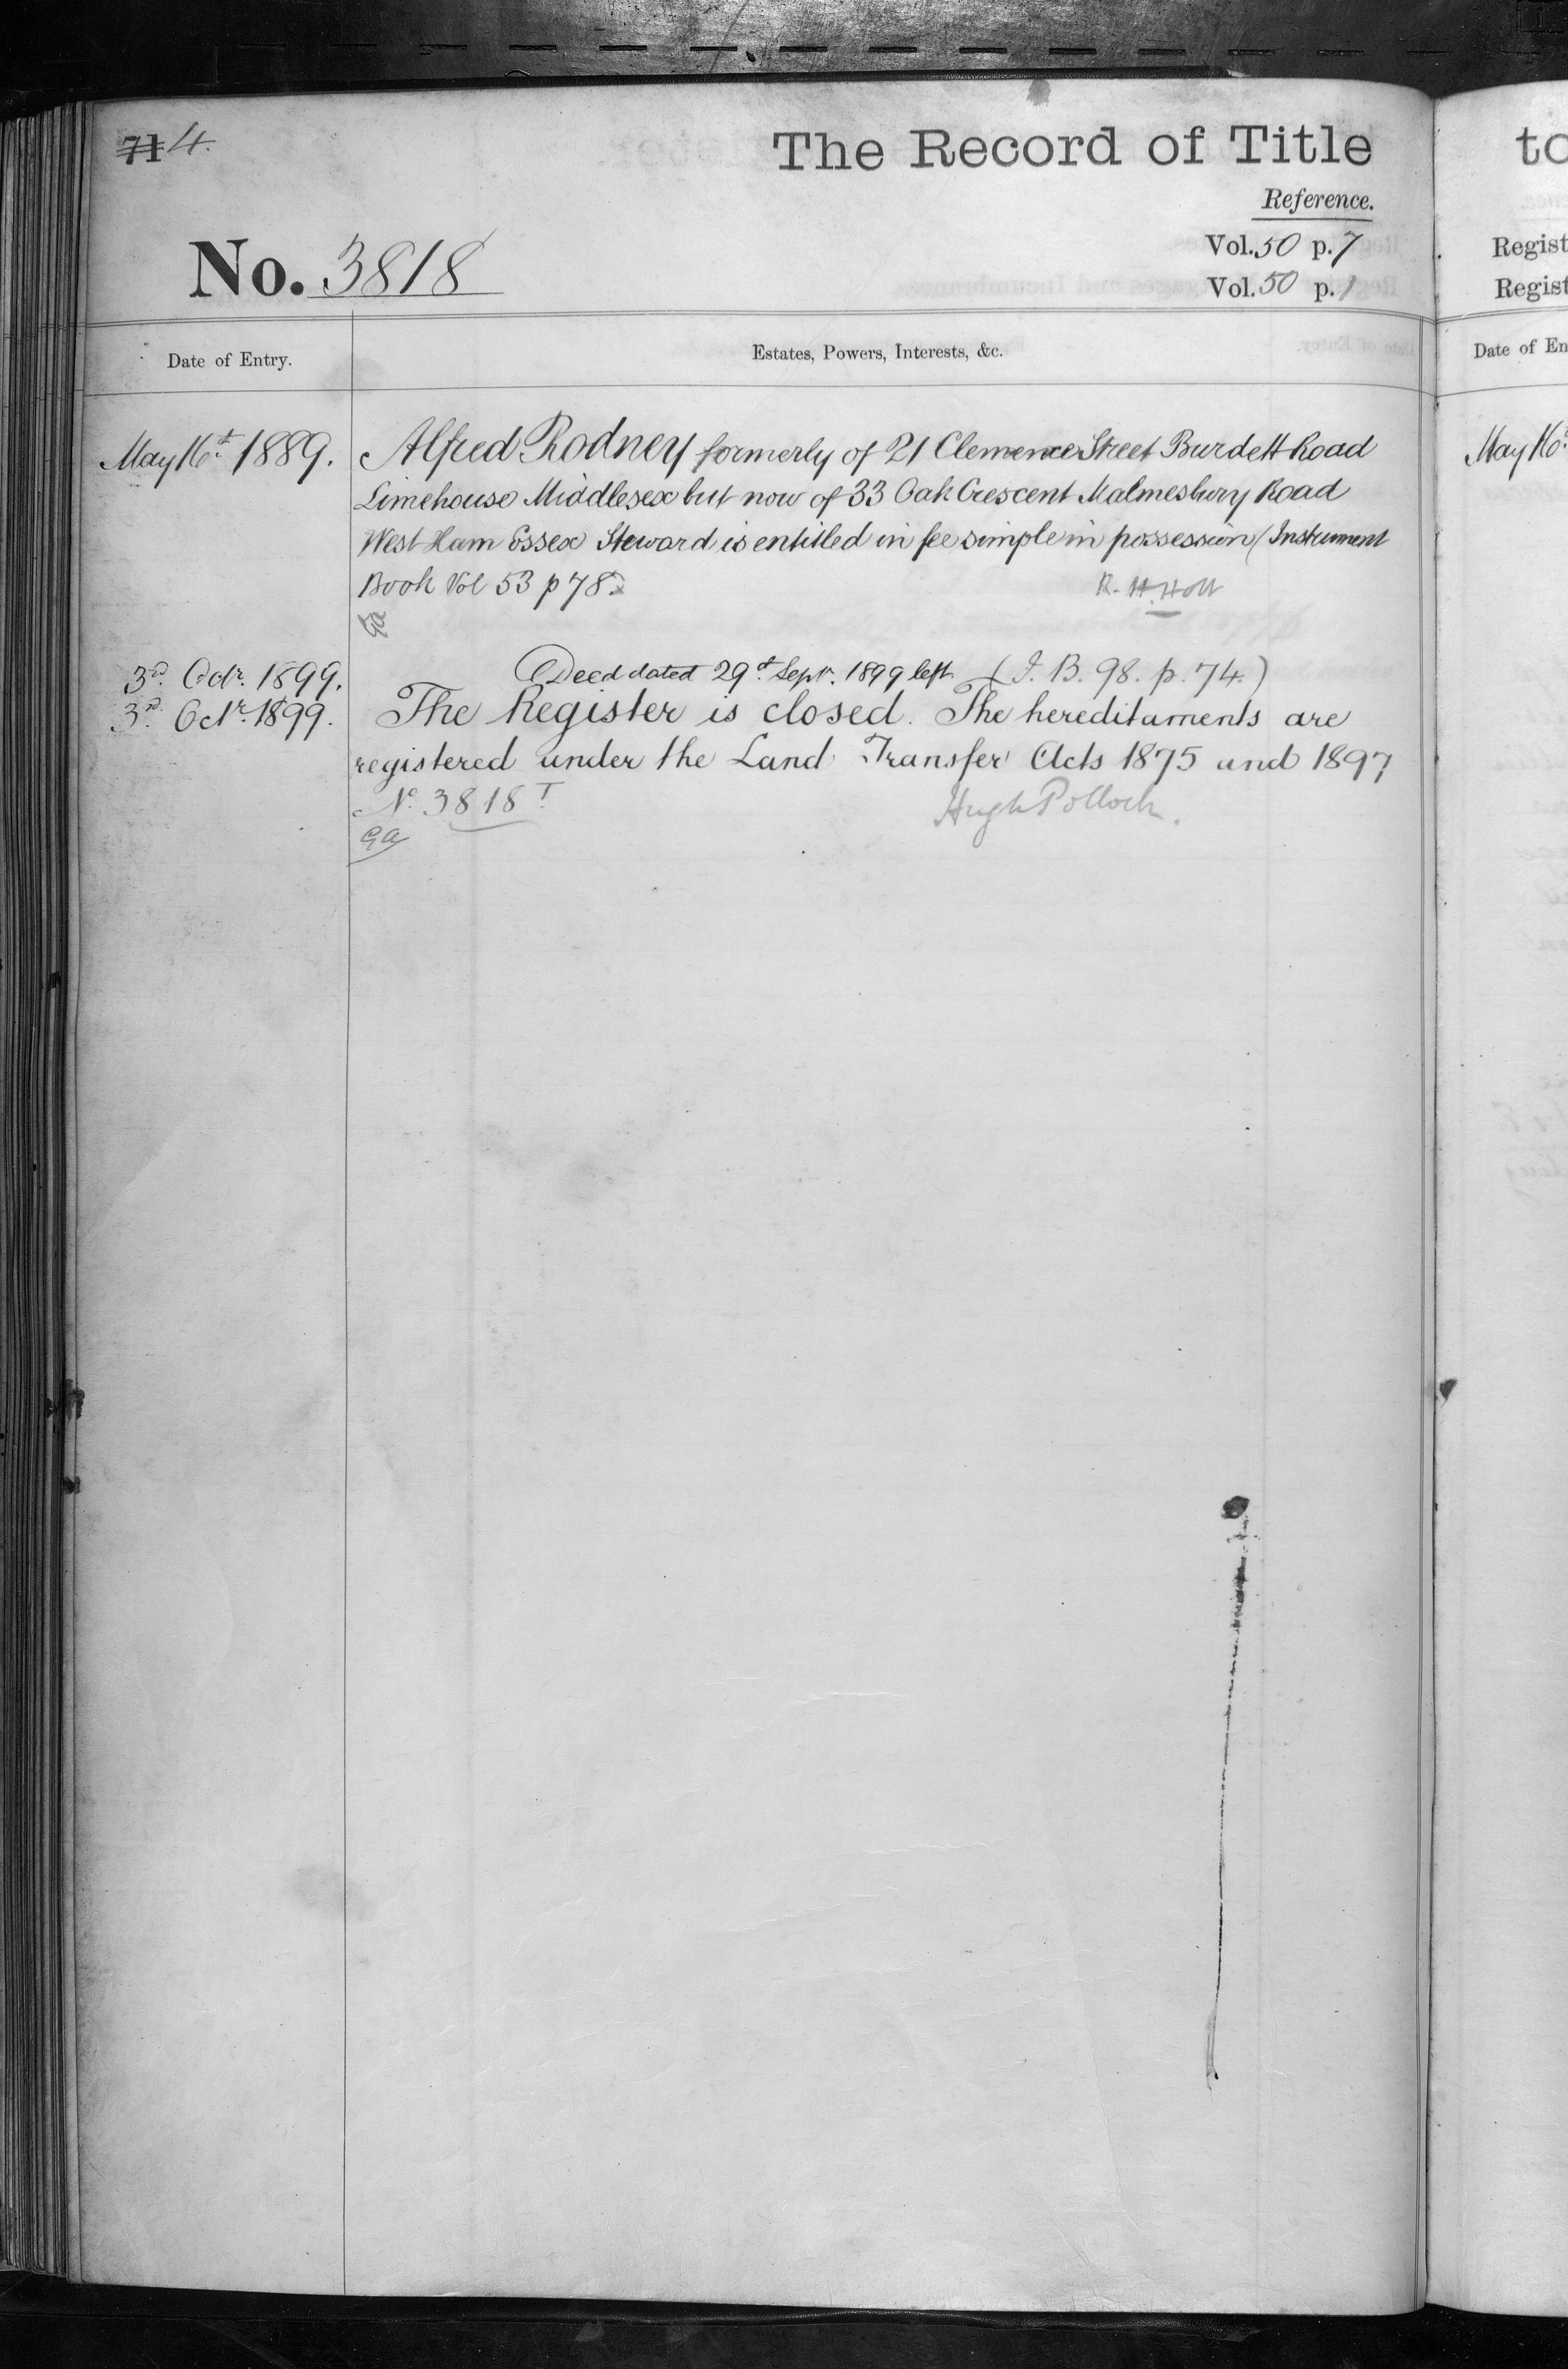 71 4.
The Record of Title
Reference.
No. 3818
Vol. 50 p. 7
Vol. 50 p. 1
Date of Entry.
Estates, Powers, Interests, &c.
May 16th 1889.
Alfred Rodney formerly of 21 Clemence Street Burdett Road
Limehouse Middlesex but now of 33 Oak Crescent Malmesbury Road
West Ham Essex Steward is entitled in fee simple in possession (Instrument
Book Vol 53 p 78)
R. H. Holt
3rd Octr. 1899.
Deed dated 29th Septr. 1899 left (I. B. 98. p. 74.)
3rd Octr. 1899.
The Register is closed. The hereditaments are
registered under the Land Transfer Acts 1875 and 1897
No. 3818 T
Hugh Pollock.
GA
to
Regist
Regist
Date of En
May 16th